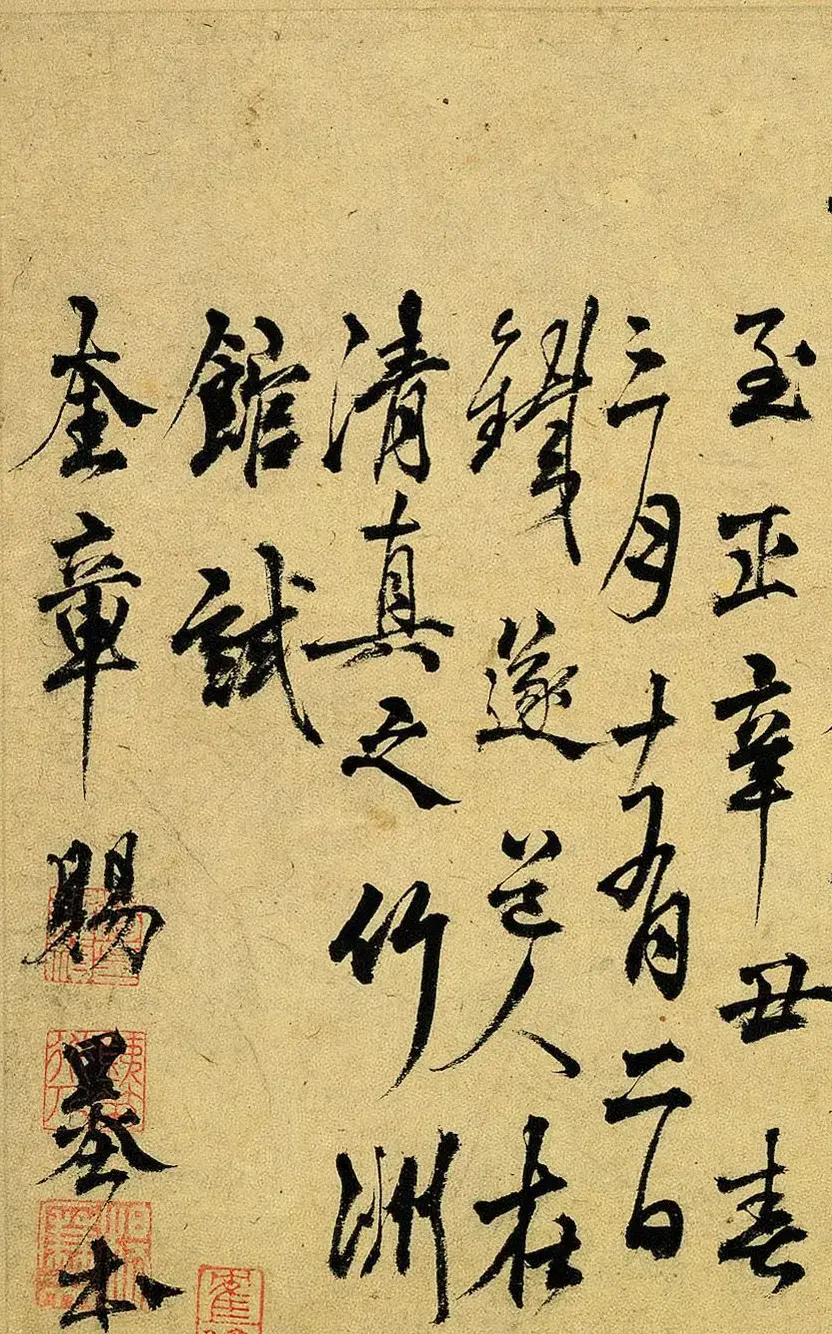 至正辛丑春
三月十有二日
鐵篴道人在
清真之竹洲
館試
奎章賜墨本